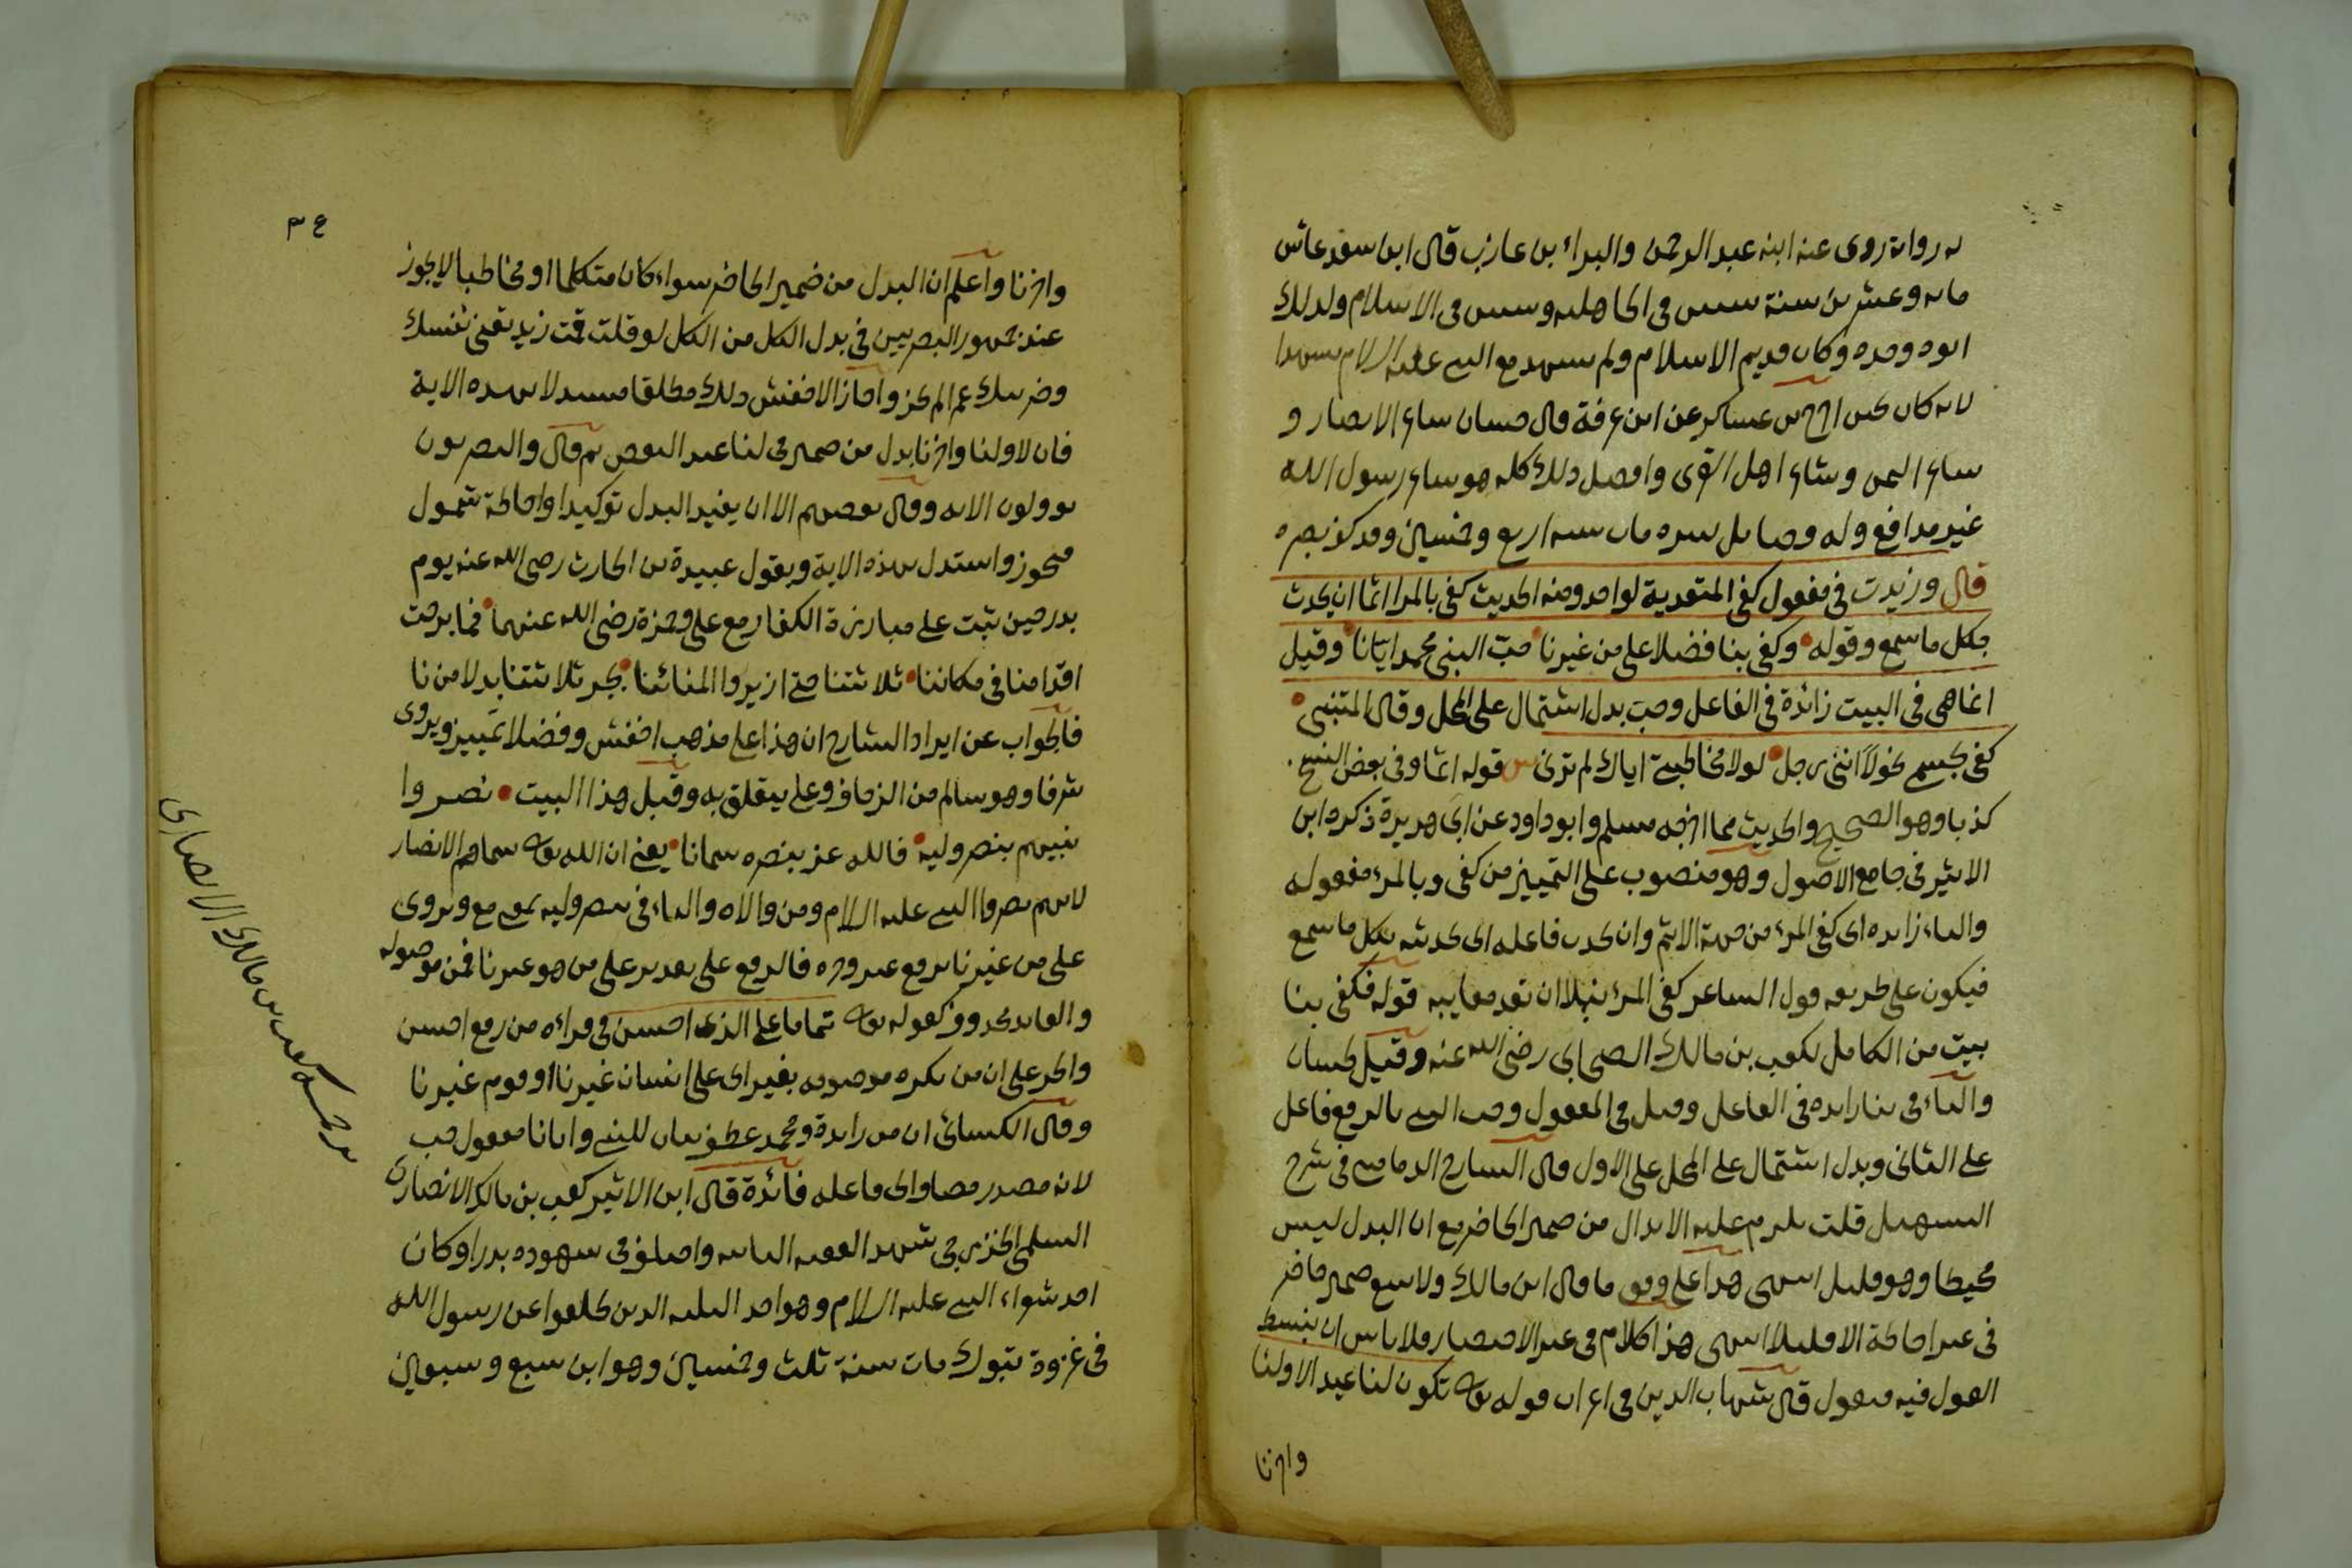 له رواية روى عنه ابنه عبد الرحمن والبراء بن عازب قال ابن سعد عاش
مايه وعشرين سنة ستين في الجاهليه وستين في الاسلام وكذلك
ابوه وجده وكان قديم الاسلام ولم يشهد مع النبي عليه السلام مشهدا
لانه كان يجبن اخرج ابن عساكر عن ابن عرفة قال حسان شاعر الانصار و
شاعر اليمن وشاعر اهل القرى وافضل ذلك كله هو شاعر رسول الله
غير مدافع وله وضايل سره مات سنه اربع وخمسين وقد كف بصره
قال وزيدت في مفعول كفى المتعدية لواحد ومنه الحديث كفى بالمرء اثما ان يحدث
بكل ما سمع وقوله وكفى بنا فضلا على من غيرنا حب النبي محمد ايانا وقيل
انما هي في البيت زائدة في الفاعل وحب بدل اشتمال على المحل وقال المتنبي
كفى بجسمي نحولا انني رجل لولا مخاطبتي اياك لم ترني قوله اثما وفي بعض النسخ
كذبا وهو الصحيح والحديث مما اخرجه مسلم وابو داود عن ابي هريرة ذكره ابن
الاثير في جامع الاصول وهو منصوب على التمييز من كفى وبالمرء مفعوله
والباء زايده اى كفى المرء من جهة الاثم وان يحدث فاعله اى تحديثه بكل ما سمع
فيكون على طريقه قول الشاعر كفى المرء نبلا ان تعد معايبه قوله فكفى بنا
بيت من الكامل لكعب بن مالك الصحابى رضى الله عنه وقيل لحسان
والباء فى بنا زايده فى الفاعل وقيل فى المفعول وحب النبى بالرفع فاعل
على الثانى وبدل اشتمال على المحل على الاول قال الشارح الدمامينى فى شرح
التسهيل قلت يلزم عليه الابدال من ضمير الحاضر مع ان البدل ليس
محيطا وهو قليل انتهى هذا على وفق ما قال ابن مالك ولا يتبع ضمير حاضر
فى غير احاطة الا قليلا انتهى هذا كلام فى غير الاختصار ولا باس ان ينبسط
القول فيه فنقول قال شهاب الدين فى اعراب قوله تعالى تكون لنا عيدا لاولنا
واخرنا
٣٤
واخرنا واعلم ان البدل من ضمير الحاضر سواء كان متكلما او مخاطبا لا يجوز
عند جمهور البصريين فى بدل الكل من الكل لو قلت قمت زيد يعنى نفسك
وضربتك عمرا لم يجز واجاز الاخفش ذلك مطلقا مستدلا بهذه الاية
فان لاولنا واخرنا بدل من ضمير فى لنا عند البعض ثم قال والبصريون
يوولون الايه وقال بعضهم الا ان يفيد البدل توكيدا واحاطة شمول
فيجوز واستدل بهذه الاية وبقول عبيدة بن الحارث رضى الله عنه يوم
بدر حين ثبت على مبارزة الكفار مع على وحمزة رضى الله عنهما فما برحت
اقدامنا فى مكاننا ثلاثتنا حتى ازيروا المنائيا بجر ثلاثتنا بدلا من نا
فالجواب عن ايراد الشارح ان هذا على مذهب اخفش وفضلا تمييز ويروى
شرفا وهو سالم من الزحاف وعلى يتعلق به وقبل هذا البيت نصروا
نبيهم بنصر وليه فالله عز بنصره سمانا يعنى ان الله تعالى سماهم الانصار
لانهم نصروا النبى عليه السلام ومن والاه والباء فى بنصر وليه بمعنى مع ويروى
على من غيرنا برفع غير وجره فالرفع على تقدير على من هو غيرنا فمن موصوله
والعايد محذوف كقوله تعالى تماما على الذى احسن فى قراءه من رفع احسن
والجر على ان من نكره موصوفه بغير اى على انسان غيرنا او قوم غيرنا
وقال الكسائى ان من زايدة ومحمد عطف بيان للنبى وايانا مفعول حب
لانه مصدر مضاف الى فاعله فائدة قال ابن الاثير كعب بن مالك الانصارى
السلمى الخزرجى شهد العقبه الثانيه واختلف فى شهوده بدرا وكان
احد شعراء النبى عليه السلام وهو احد الثلثه الذين تخلفوا عن رسول الله
فى غزوة تبوك مات سنة ثلث وخمسين وهو ابن سبع وسبعين
ترجمة كعب بن مالك الانصارى